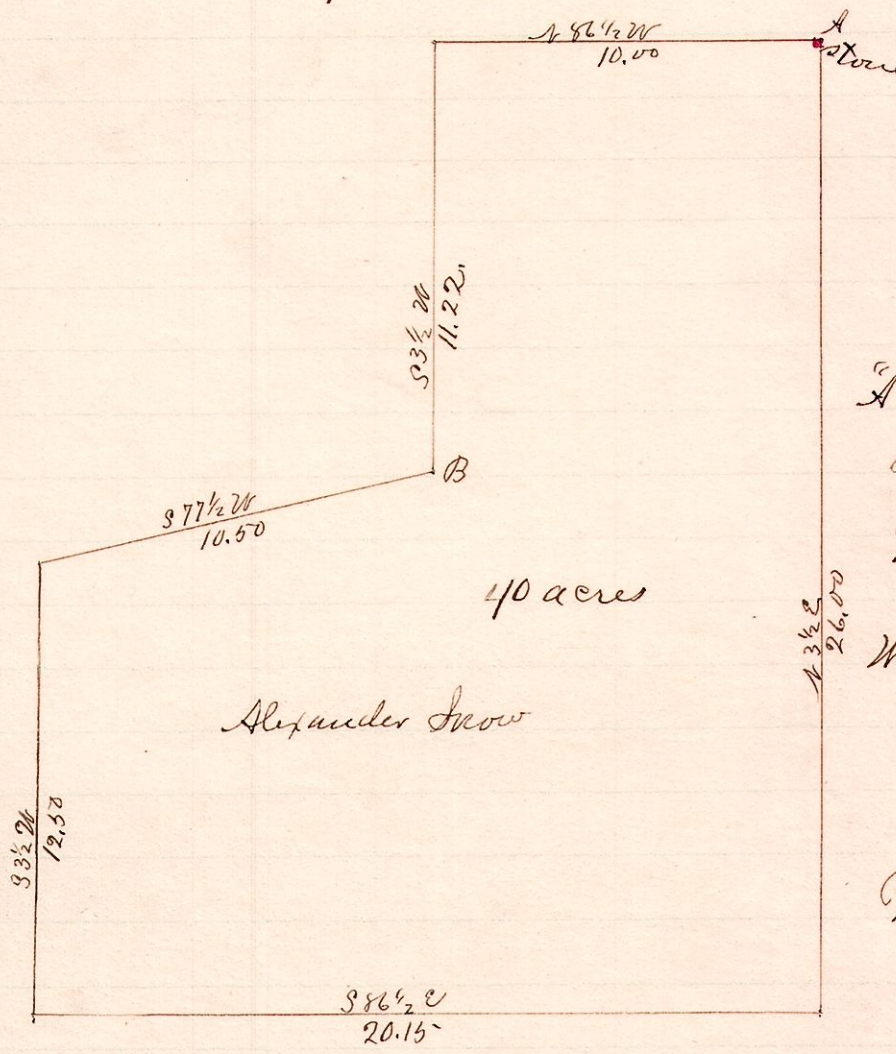 N 86 1/2 W
10.00
A
stone
S 3 1/2 W
11.22
B
S 77 1/2 W
10.50
40 acres
N 3 1/2 E
26.00
Alexander Snow
S 3 1/2 W
12.50
S 86 1/2 E
20.15
"A
W